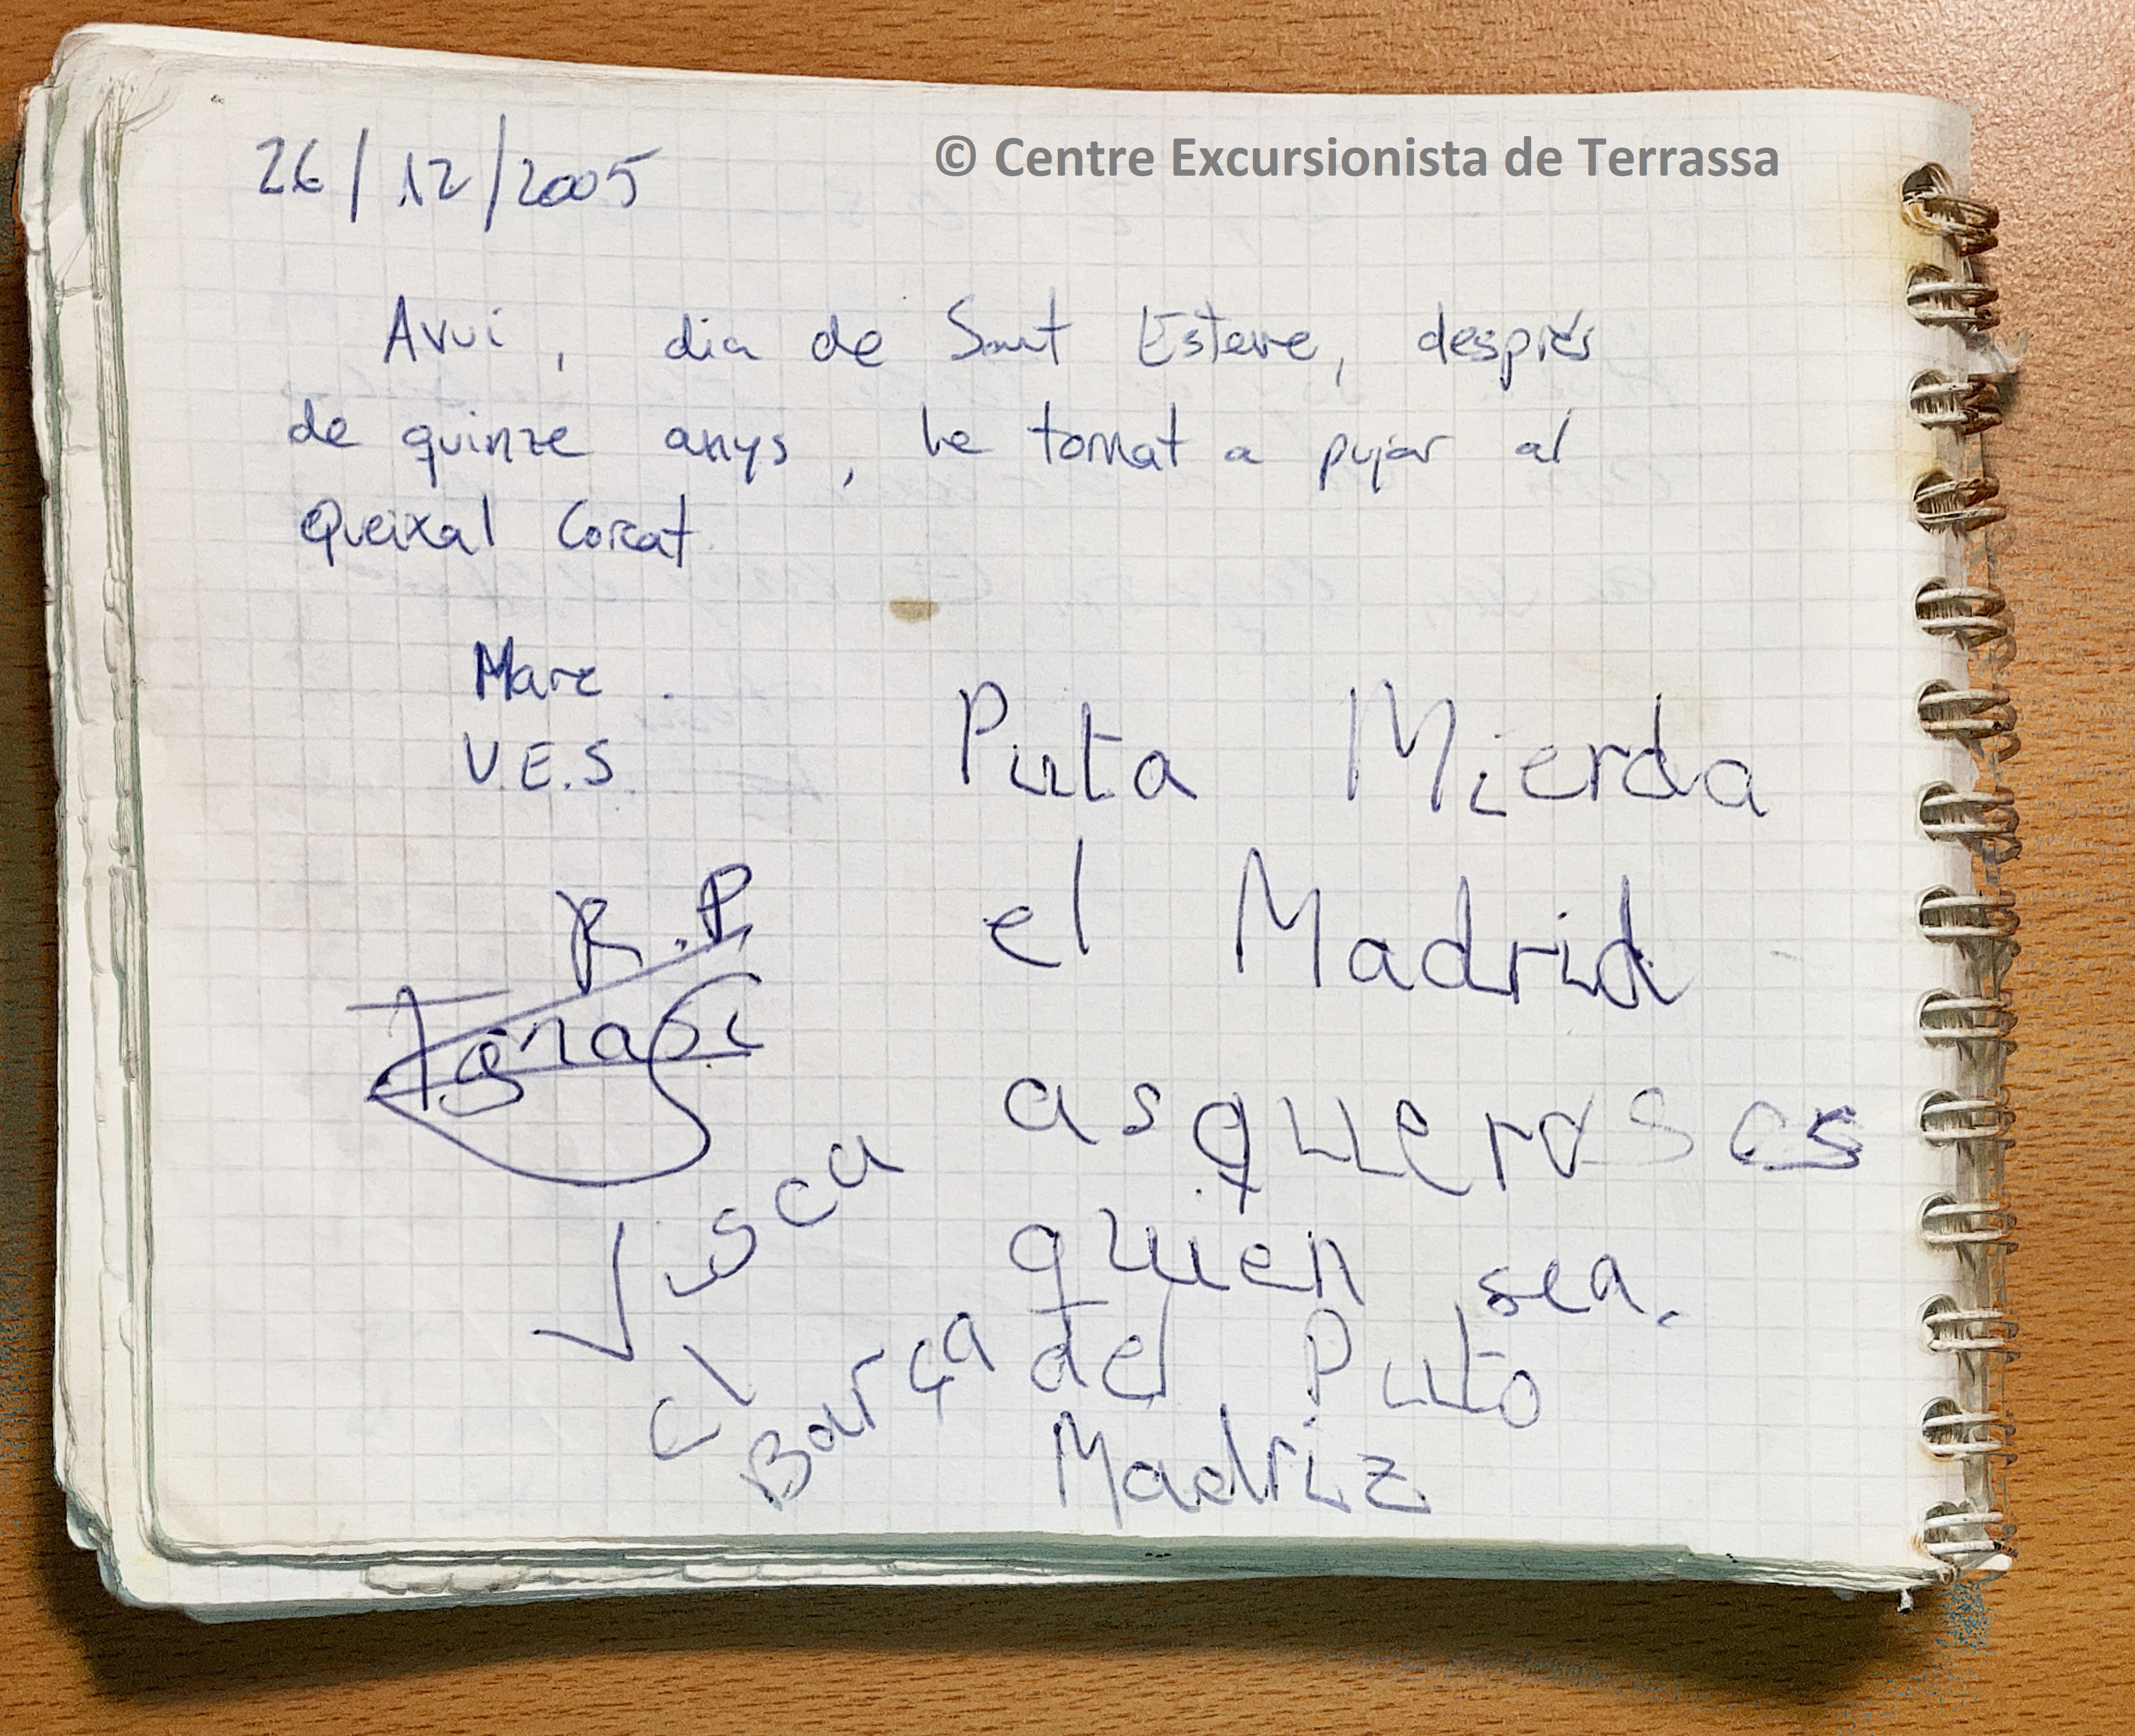 © Centre Excursionista de Terrassa
26/12/2005
Avui, dia de Sant Esteve, després
de quinze anys, he tornat a pujar al
Queixal Corcat.
Marc
U.E.S.
Puta Mierda
el Madrid
asquerosos
quien sea.
del Puto
Madriz
R.P.
Ignasi
Visca
el
Barça